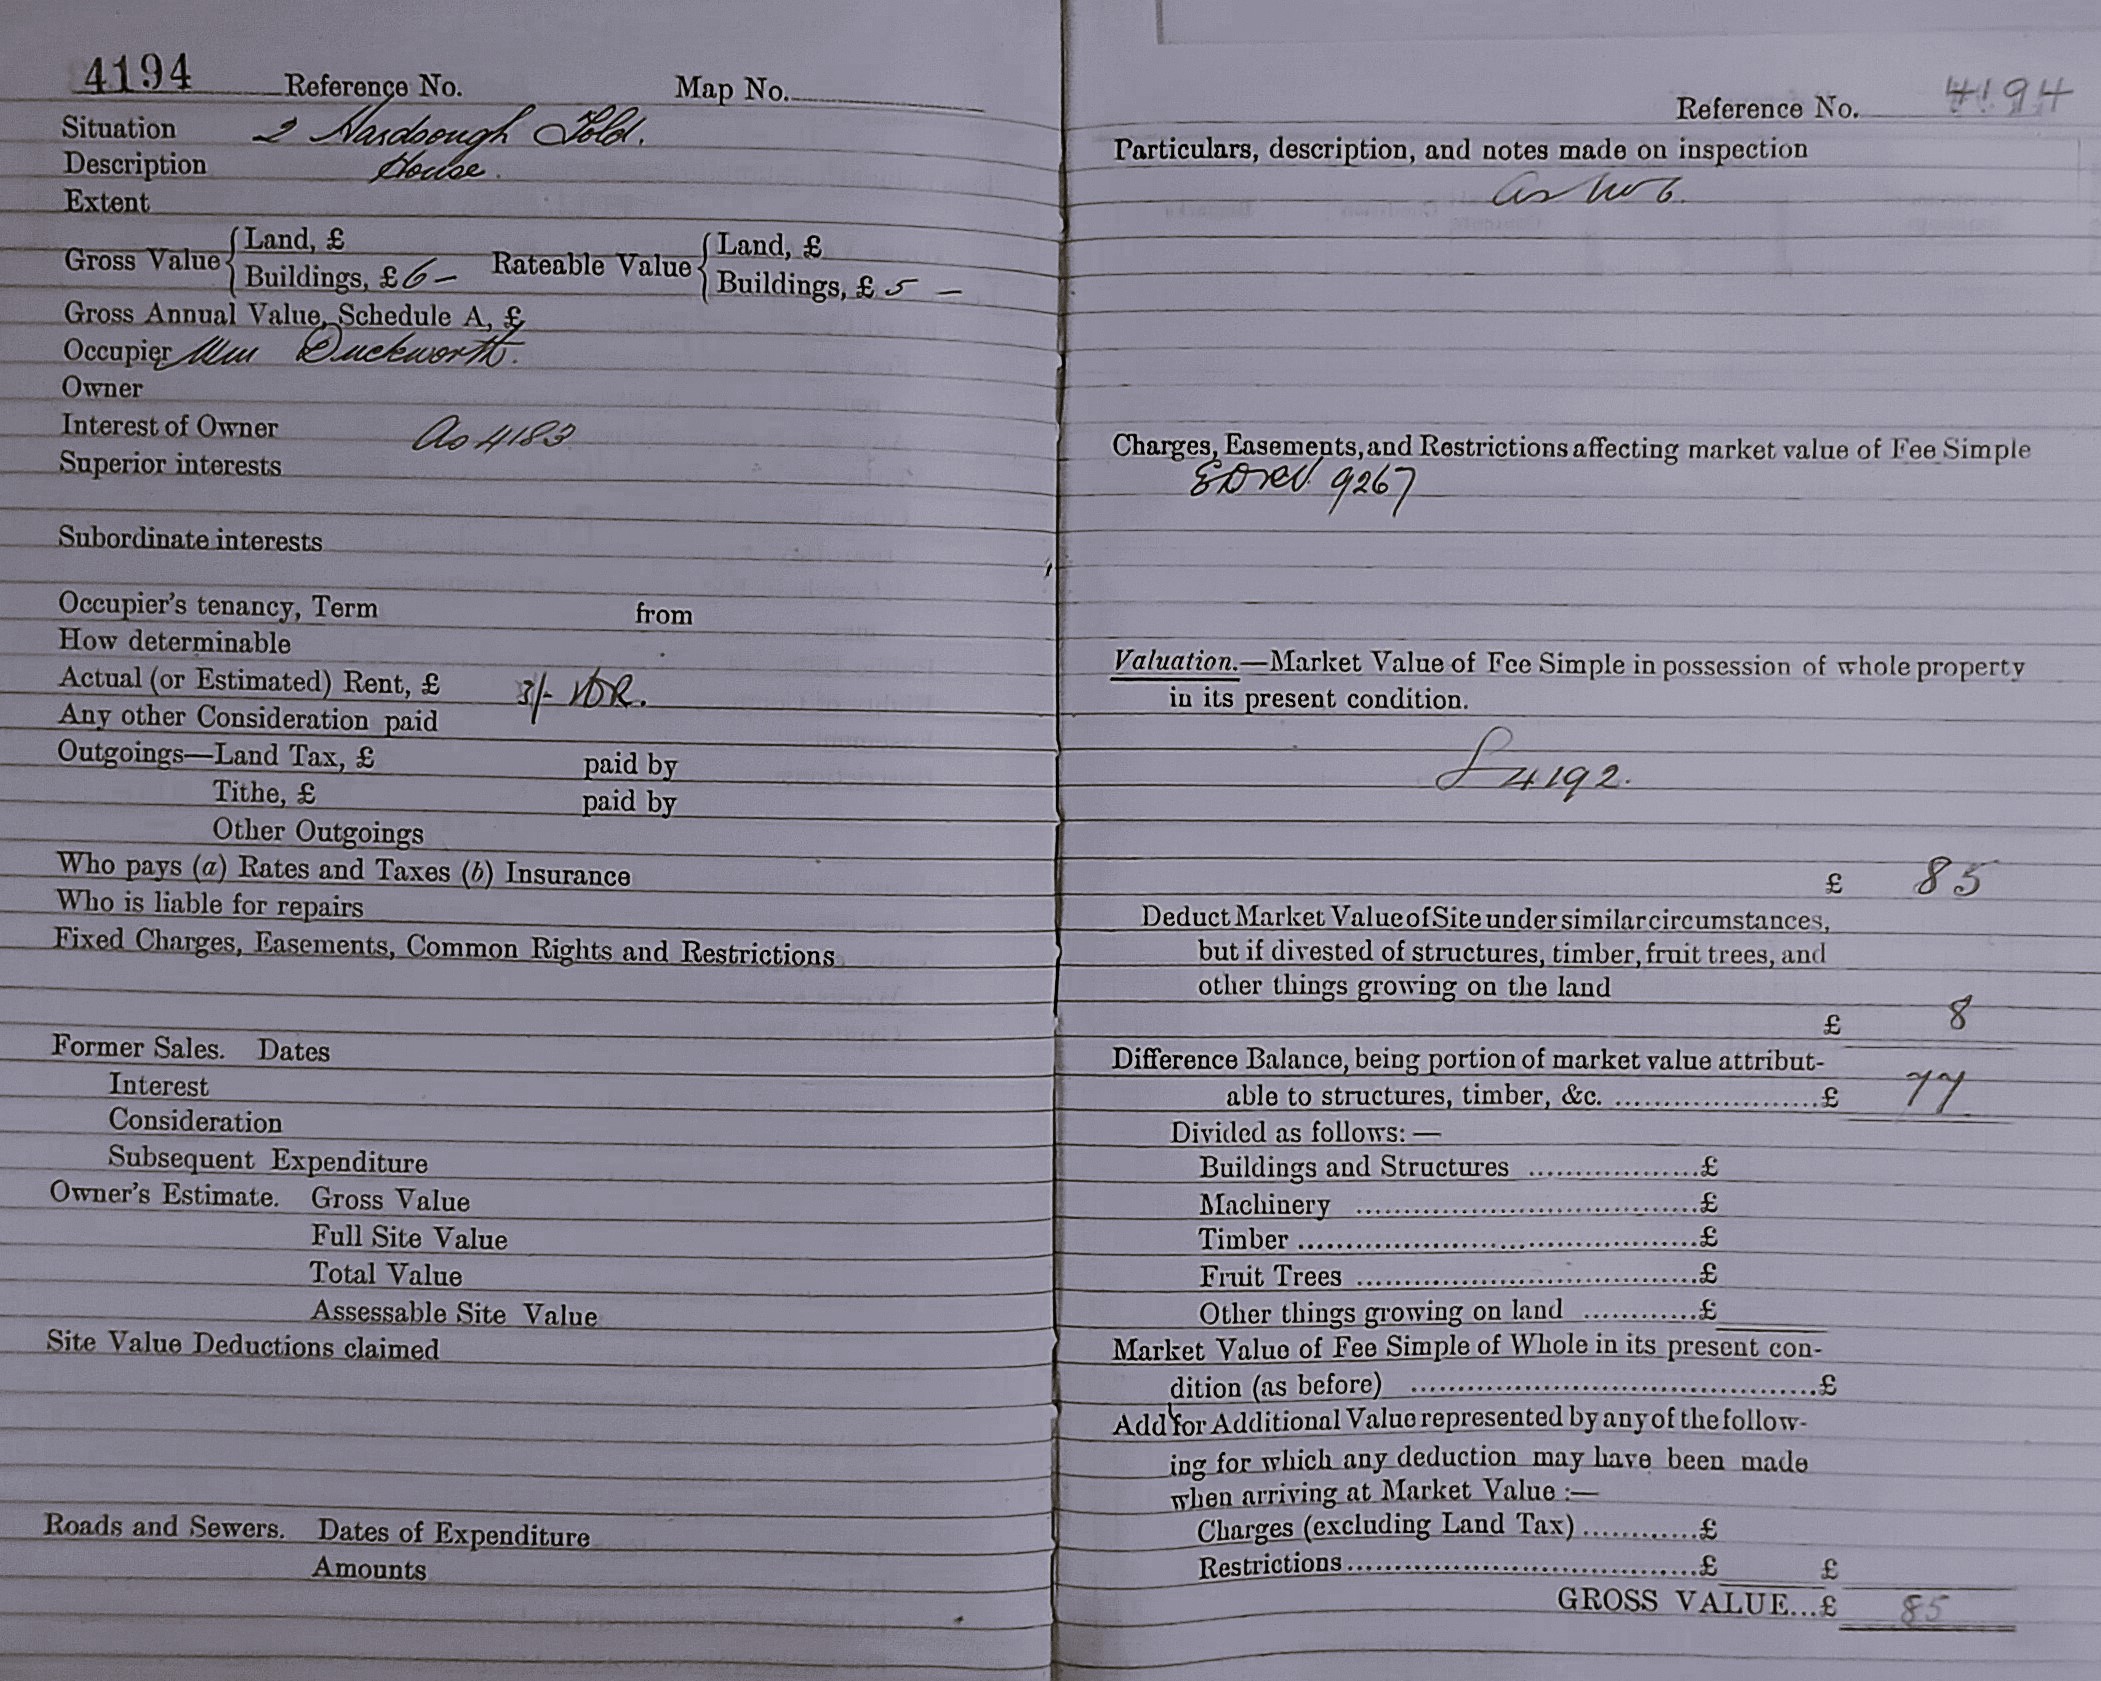 4194 Reference No. Map No.
Situation 2 Hardsough Fold.
Description House.
Extent
Gross Value { Land, £
Buildings, £ 6 – Rateable Value { Land, £
Buildings, £ 5 –
Gross Annual Value, Schedule A, £
Occupier Wm Duckworth.
Owner
Interest of Owner As 4183
Superior interests
Subordinate interests
Occupier's tenancy, Term from
How determinable
Actual (or Estimated) Rent, £ 3/-
Any other Consideration paid
Outgoings—Land Tax, £ paid by
Tithe, £ paid by
Other Outgoings
Who pays (a) Rates and Taxes (b) Insurance
Who is liable for repairs
Fixed Charges, Easements, Common Rights and Restrictions
Former Sales. Dates
Interest
Consideration
Subsequent Expenditure
Owner's Estimate. Gross Value
Full Site Value
Total Value
Assessable Site Value
Site Value Deductions claimed
Roads and Sewers. Dates of Expenditure
Amounts
Reference No. 4194
Particulars, description, and notes made on inspection
as No 6.
Charges, Easements, and Restrictions affecting market value of Fee Simple
9267
Valuation.—Market Value of Fee Simple in possession of whole property
in its present condition.
4192.
£ 85
Deduct Market Value of Site under similar circumstances,
but if divested of structures, timber, fruit trees, and
other things growing on the land
£ 8
Difference Balance, being portion of market value attribut-
able to structures, timber, &c. ..................... £ 77
Divided as follows: —
Buildings and Structures .................. £
Machinery .................................... £
Timber .......................................... £
Fruit Trees .................................... £
Other things growing on land ............ £
Market Value of Fee Simple of Whole in its present con-
dition (as before) .......................................... £
Add for Additional Value represented by any of the follow-
ing for which any deduction may have been made
when arriving at Market Value :—
Charges (excluding Land Tax) ............ £
Restrictions .................................... £ £
GROSS VALUE... £ 85